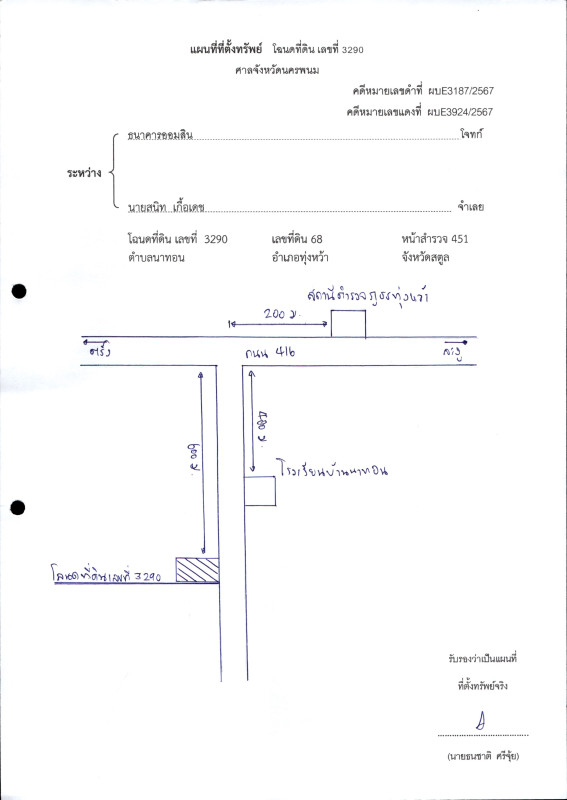 แผนที่ที่ตั้งทรัพย์ โฉนดที่ดิน เลขที่ 3290
ศาลจังหวัดนครพนม
คดีหมายเลขดำที่ ผบE3187/2567
คดีหมายเลขแดงที่ ผบE3924/2567
ธนาคารออมสิน โจทก์
ระหว่าง
นายสนิท เกื้อเดช จำเลย
โฉนดที่ดิน เลขที่ 3290 เลขที่ดิน 68 หน้าสำรวจ 451
ตำบลนาทอน อำเภอทุ่งหว้า จังหวัดสตูล
สถานีตำรวจภูธรทุ่งหว้า
200 ม.
ตรัง ถนน 416 ละงู
600 ม.
โรงเรียนบ้านนาทอน
โฉนดที่ดินเลขที่ 3290
รับรองว่าเป็นแผนที่
ที่ตั้งทรัพย์จริง
(นายธนชาติ ศรีจุ้ย)